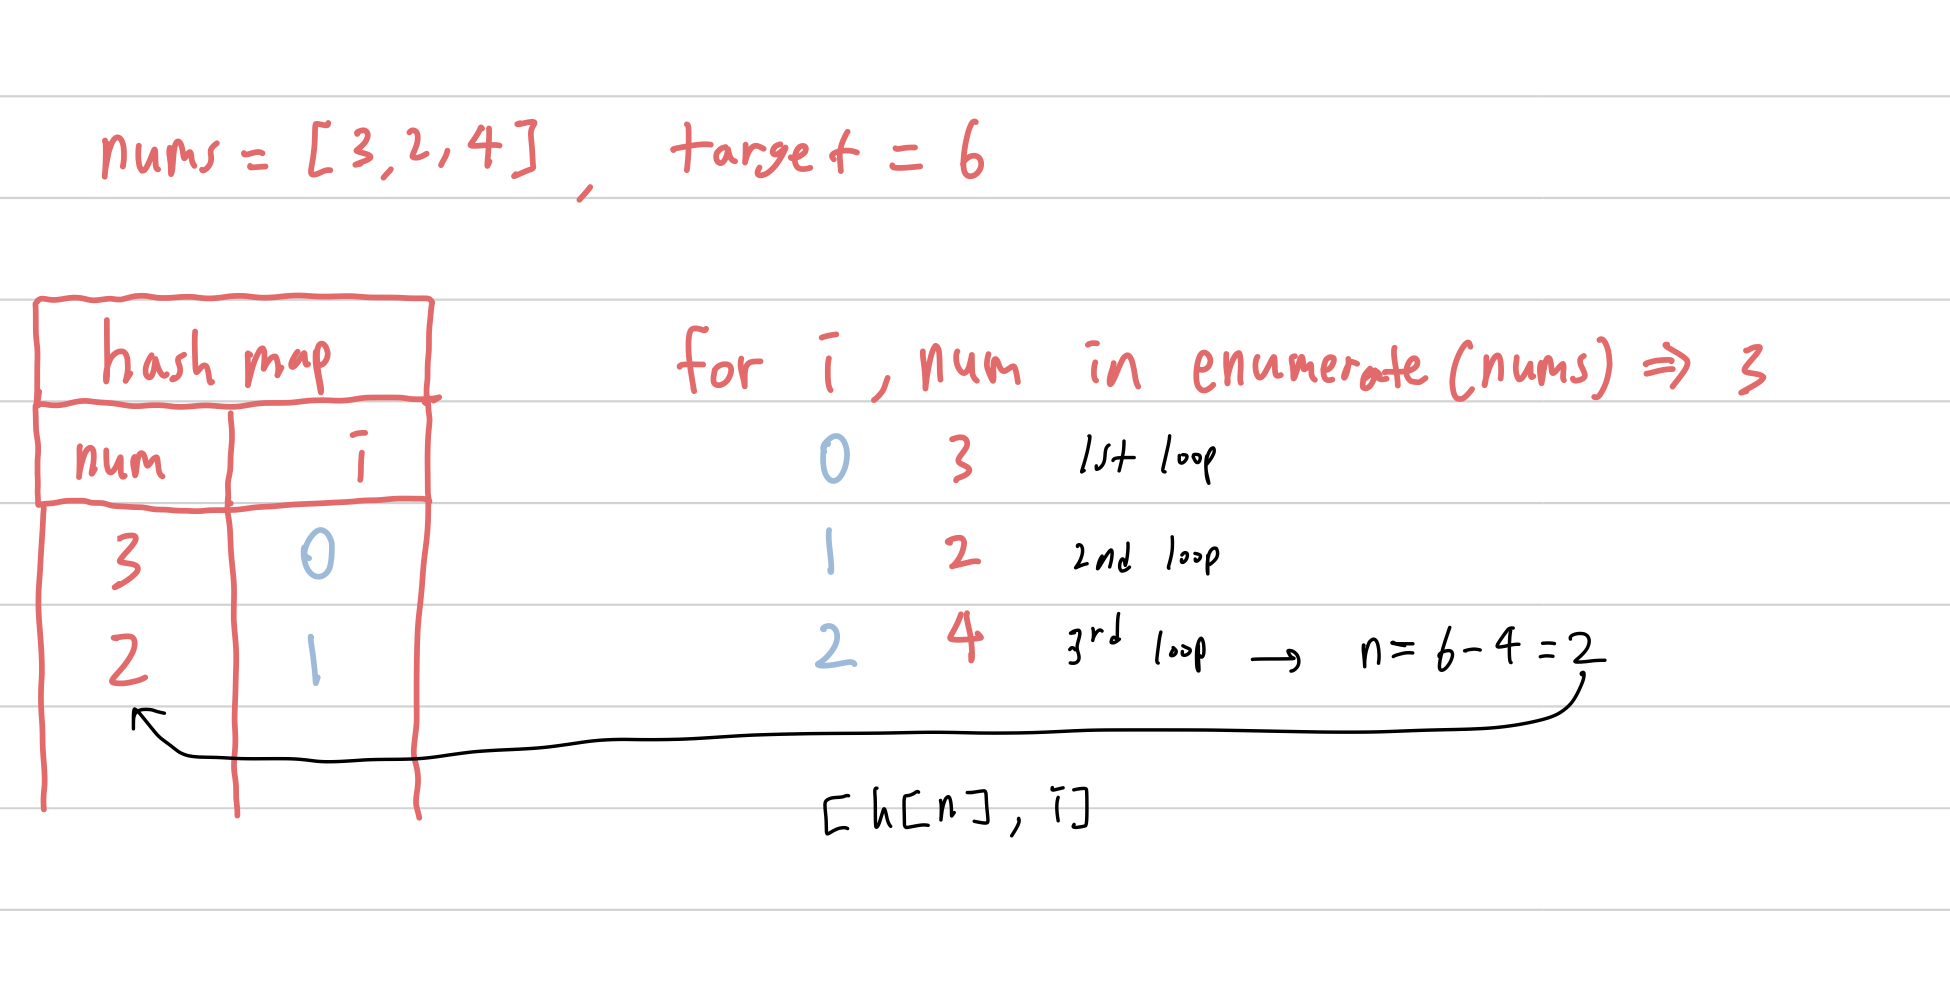 nums = [3,2,4], target = 6
hash map
num i
3 0
2 1
for i, num in enumerate(nums) => 3
0 3 1st loop
1 2 2nd loop
2 4 3rd loop → n = 6-4 = 2
[h[n], i]